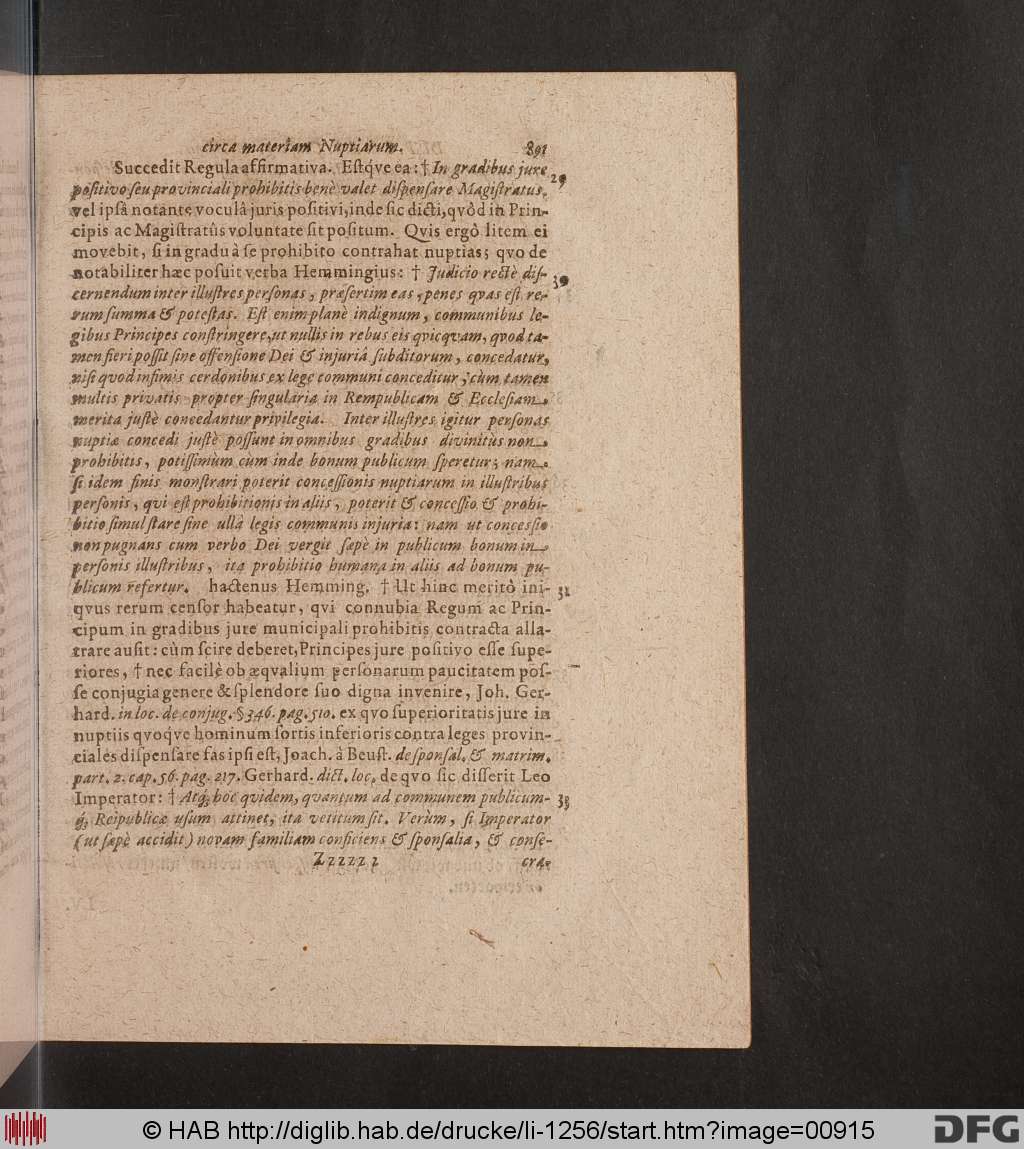 circa materiam Nuptiarum. 891
Succedit Regula affirmativa. Estq́ve ea: † In gradibus jure 29
positivo seu provinciali prohibitis benè valet dispensare Magistratus,
vel ipsâ notante voculâ juris positivi, inde sic dicti, qvòd in Prin-
cipis ac Magistratûs voluntate sit positum. Qvis ergò litem ei
movebit, si in gradu à se prohibito contrahat nuptias; qvo de
notabiliter hæc posuit verba Hemmingius: † Judicio rectè dis- 30
cernendum inter illustres personas, præsertim eas, penes qvas est re-
rum summa & potestas. Est enim planè indignum, communibus le-
gibus Principes constringere, ut nullis in rebus eis qvicqvam, qvod ta-
men fieri possit sine offensione Dei & injuriâ subditorum, concedatur,
nisi qvod infimis cerdonibus ex lege communi conceditur; cùm tamen
multis privatis propter singularia in Rempublicam & Ecclesiam
merita justè concedantur privilegia. Inter illustres igitur personas
nuptiæ concedi justè possunt in omnibus gradibus divinitùs non
prohibitis, potissimùm cum inde bonum publicum speretur; nam
si idem finis monstrari poterit concessionis nuptiarum in illustribus
personis, qvi est prohibitionis in aliis, poterit & concessio & prohi-
bitio simul stare sine ulla legis communis injuria: nam ut concessio
non pugnans cum verbo Dei vergit sæpè in publicum bonum in
personis illustribus, ita prohibitio humana in aliis ad bonum pu-
blicum refertur. hactenus Hemming. † Ut hinc meritò ini- 31
qvus rerum censor habeatur, qvi connubia Regum ac Prin-
cipum in gradibus jure municipali prohibitis contracta alla-
trare ausit: cùm scire deberet, Principes jure positivo esse supe-
riores, † nec facilè ob æqvalium personarum paucitatem pos-
se conjugia genere & splendore suo digna invenire, Joh. Ger-
hard. in loc. de conjug. § 346. pag. 510. ex qvo superioritatis jure in
nuptiis qvoqve hominum sortis inferioris contra leges provin-
ciales dispensare fas ipsi est, Joach. à Beust. de sponsal. & matrim.
part. 2. cap. 56. pag. 217. Gerhard. dict. loc. de qvo sic disserit Leo
Imperator: † Atq́; hoc qvidem, qvantum ad communem publicum- 33
q́; Reipublicæ usum attinet, ita vetitum sit. Verùm, si Imperator
(ut sæpè accidit) novam familiam conficiens & sponsalia, & conse-
Zzzzz 2 cra-
© HAB http://diglib.hab.de/drucke/li-1256/start.htm?image=00915
DFG